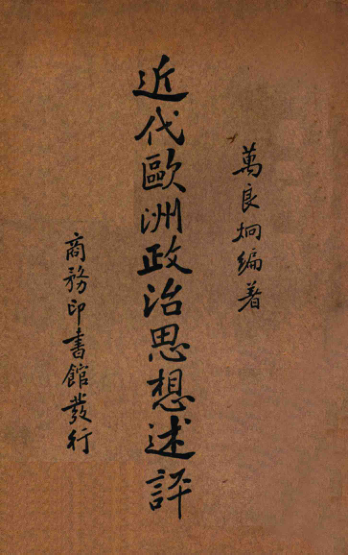 萬良炯編著
近代歐洲政治思想述評
商務印書館發行